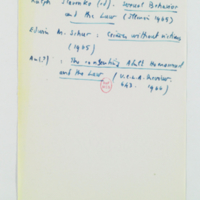 Ralph Slovenko (ed). Sexual Behavior
and the Law (Illinois 1965)
Edwin M. Schur : Crimes without victims
(1965)
: The consenting Adult Homosexual
and the Law / U.C.L.A. Review
643. 1966)